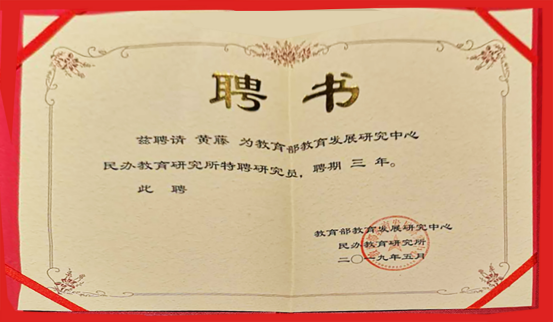 聘书
兹聘请 黄藤 为教育部教育发展研究中心
民办教育研究所特聘研究员，聘期 三 年。
此 聘
教育部教育发展研究中心
民办教育研究所
二〇一九年五月